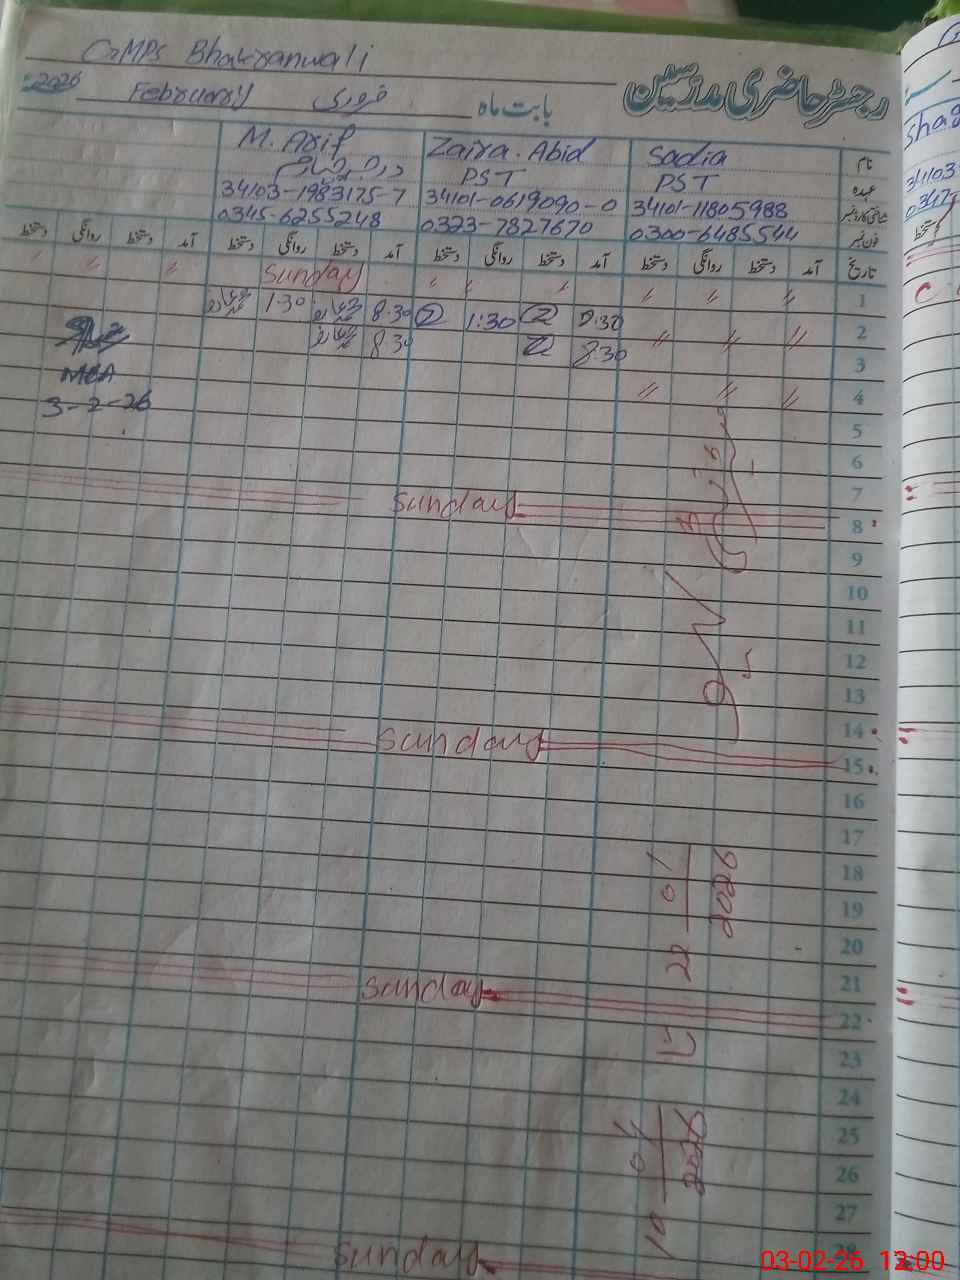 GMPS Bhakranwali
رجسٹر حاضری مدرسین
2026 February فروری بابت ماہ
M. Arif Zaira. Abid Sadia نام
درجہ چہارم PST PST عہدہ
34103-1983175-7 34101-0619090-0 34101-11805988 شناختی کارڈ نمبر
0345-6255248 0323-7827670 0300-6485544 فون نمبر
دستخط روانگی دستخط آمد دستخط روانگی دستخط آمد دستخط روانگی دستخط آمد دستخط روانگی دستخط آمد تاریخ
" " " Sunday " " " " " " 1
1-30 8-30 1:30 8:30 " " " 2
8-30 8-30 3
MEA " " " 4
3-2-26
5
6
7
Sunday 8
9
10
11
12
13
14
Sunday 15
16
17
18
19
20
21
Sunday 22
23
24
25
26
27
Sunday 28
22-01
2026
تا
10-04
2026
Shag
34103
0347
03-02-26 12:00